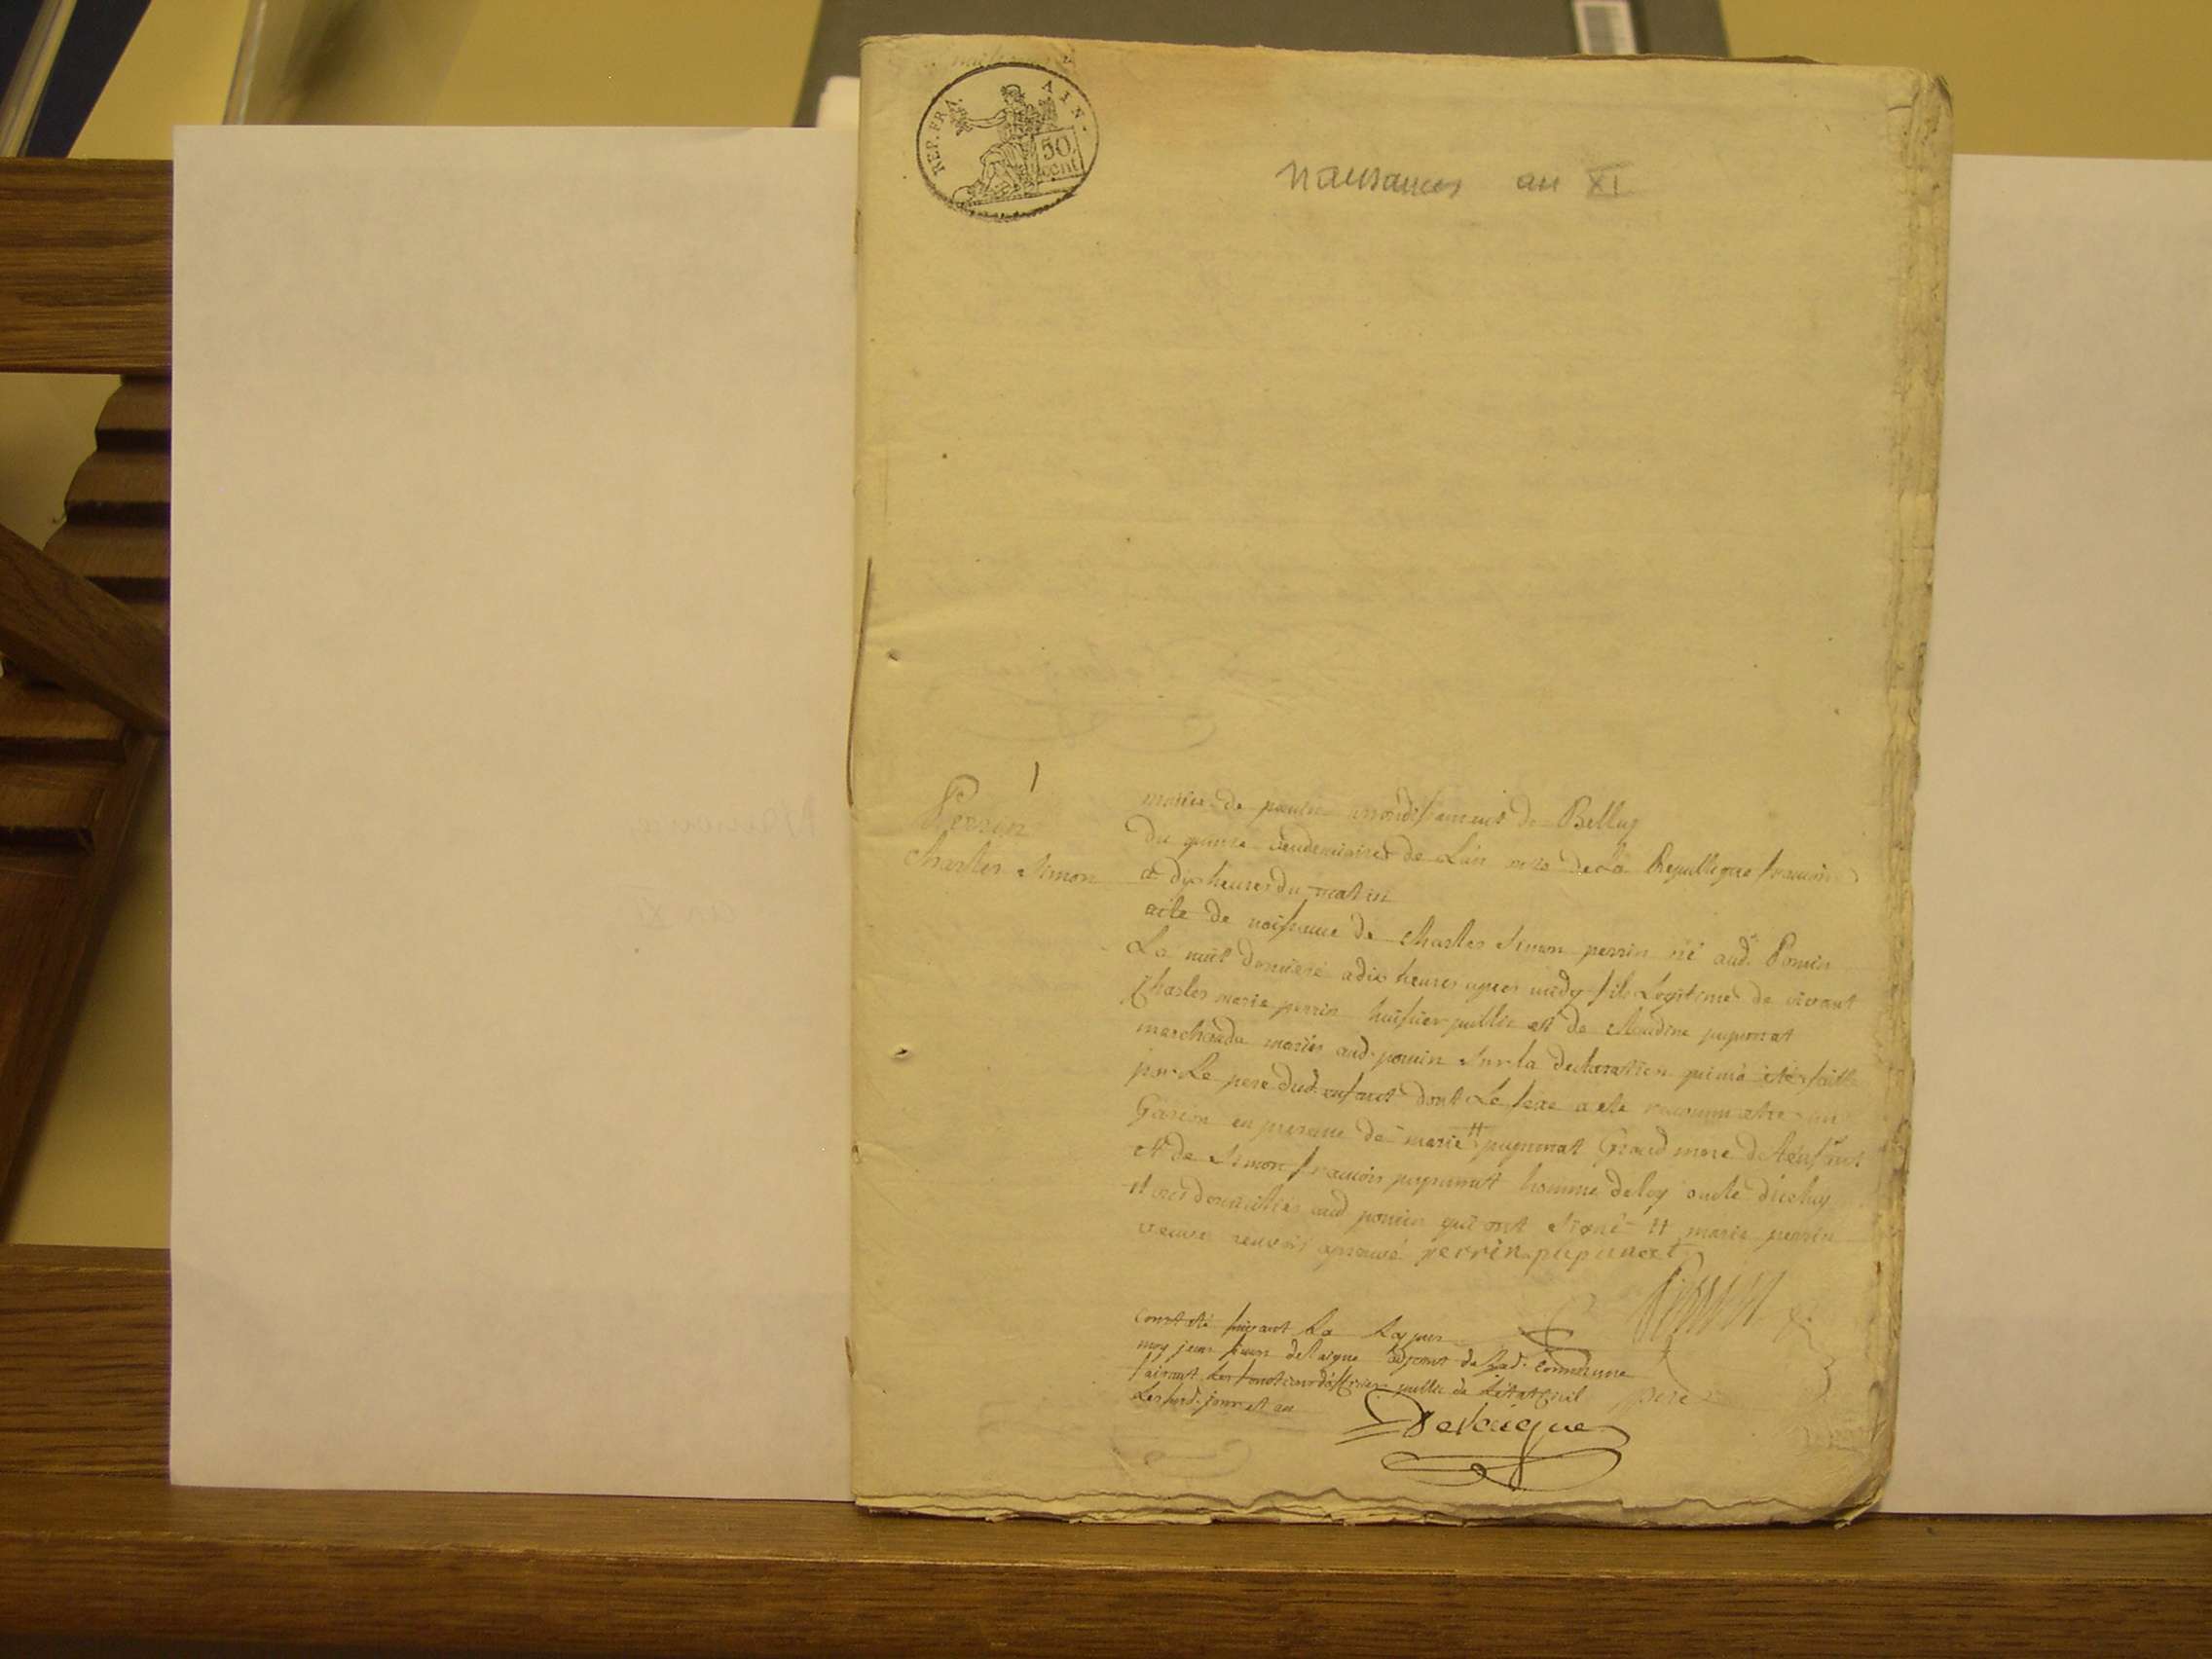 REP. FRA. AIN.
50 cent
naissances an XI
1
Perrin
charles Simon
mairie de poncin arrondissement de Belley
Du quinze vendemiaire de L'an onze de La Republique francoise
a dix heures du matin
acte de naissance de charles Simon perrin né aud. Poncin
La nuit derniere a dix heures apres midy fils Legitime de vivant
Charles marie perrin huissier public et de Claudine pupunat
marchande mariés aud. poncin Sur la declaration qui m'a été faitte
par Le pere dud. enfant dont Le sexe a été reconnu etre un
Garcon en presence de marie # pupunat Grand mere de l'enfant
et de Simon francois pupunat homme de loy oncle d'iceluy
domiciliés aud poncin qui ont Signé # marie perrin
veuve renvois aprouvé perrin pupunat
perrin
Constaté suivant La Loy par
moy jean delaigue adjoint de Lad. Commune
faisant Les fonctions d'officier public de L'état Civil
Les susd. jour et an
pere
Delaigue